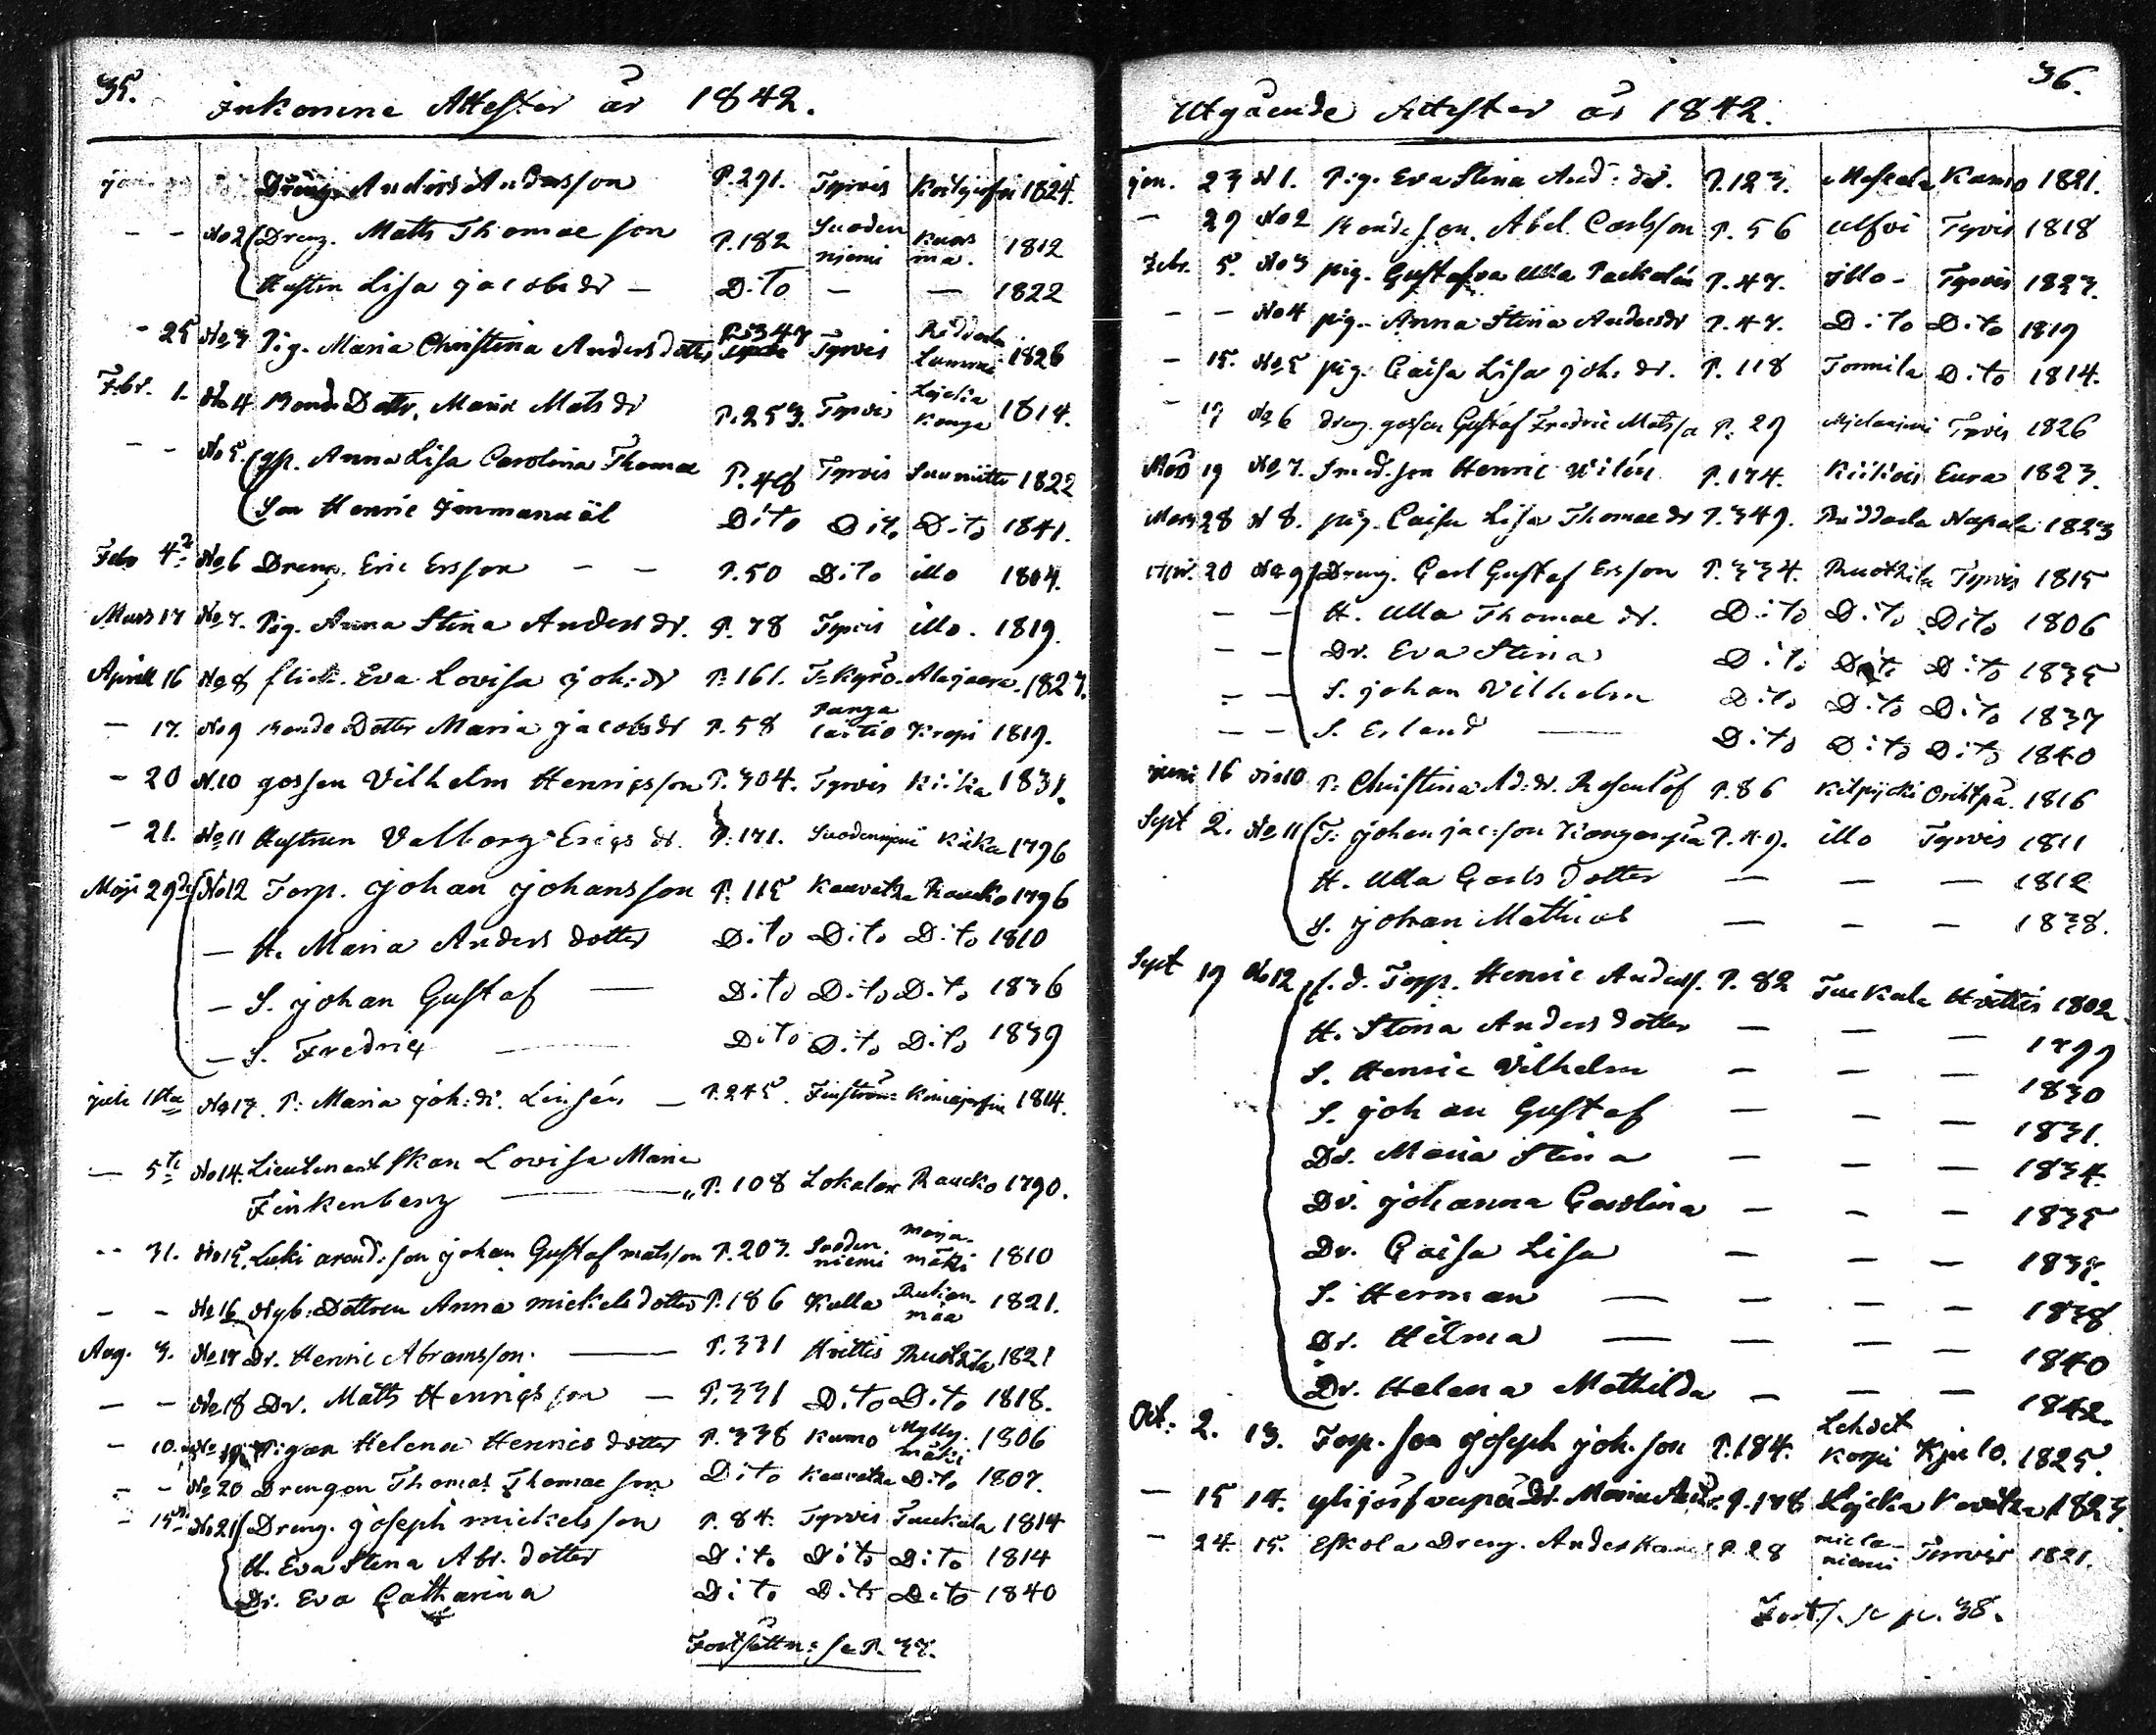 35.
Inkomne Attester år 1842.
Dräng. Anders Andersson P. 291. Tyrvis 1824.
- - No 2 Dreng. Matts Thomae son P. 182 Suoden niemi Kuor ma. 1812
Hustrun Lisa Jacobs dr - Dito - - 1822
- 25 No 3 Pig. Maria Christina Anders dotter P. 347 Tyrvis 1826
Febr. 1. No 4 Bonde Dottr. Maria Mats dr P. 253. Tyrvis 1814.
- - No 5. gp. Anna Lisa Carolina Thomae P. 48 Tyrvis 1822
Son Henric Immanuäl Dito Dito Dito 1841.
Febr 4 No 6 Dreng. Eric Ersson - - P. 50 Dito illo 1804.
Mars 17 No 7. Pig. Anna Stina Anders dr. P. 78 Tyrvis illo. 1819.
Aprill 16 No 8 flick. Eva Lovisa Joh: dr P. 161. T:kyrö 1827.
- 17. No 9 Bonde Dotter Maria Jacobs dr P. 58 Punga laitio 1819.
- 20 N. 10 gossen Vilhelm Henrigsson P. 304. Tyrvis Kiika 1831.
- 21. No 11 Hustrun Valborg Erigs dr. P. 171. Suodenniemi Kiika 1796
Maji 29 No 12 Torp. Johan Johansson P. 115 Kauvatza 1796
- H. Maria Anders dotter Dito Dito Dito 1810
- S. Johan Gustaf - Dito Dito Dito 1836
- S. Fredrig - Dito Dito Dito 1839
Juli 1sta No 13. P: Maria Joh: dr. Linsén - P. 245. 1814.
- 5te No 14. Lieutenantskan Lovisa Maria
Finkenberg - P. 108 Lokalax 1790.
-- 31. No 15. son Johan Gustaf matsson P. 203. Suoden. niemi maja- mäki 1810
- - No 16 Nyb: Dottren Anna mickels dotter P. 186 Kulla 1821.
Aug. 3. No 17 Dr. Henric Abramsson. - P. 331 Hvittis Ruothila 1821
- - No 18 Dr. Matts Henrigsson - P. 331 Dito Dito 1818.
- 10. No 19 Pigan Helena Henrics dotter P. 338 Kumo Mylly- mäki 1806
- - No 20 Drengen Thomas Thomae son Dito Kauvatza Dito 1807.
- 15 No 21 Dreng. Joseph mickelsson P. 84. Tyrvis 1814
H. Eva Stina Abr. dotter Dito Dito Dito 1814
Dr. Eva Catharina Dito Dito Dito 1840
Fortsättn: se P. 37.
36.
Utgående Attester år 1842.
Jan. 23 N 1. Pig. Eva Stina And: dr. P. 123. Kumo 1821.
- 29 No 2 Bonde son. Abel Carlsson P. 56 Ulfvi Tyrvis 1818
Febr. 5. No 3 pig. Gustafva Ulla P. 47. illo - Tyrvis 1823.
- - No 4 pig. Anna Stina Anders dr P. 47. Dito Dito 1819
- 15. No 5 pig. Caisa Lisa Joh. dr. P. 118 Tommila Dito 1814.
- 17 No 6 dreng. gossen Gustaf Fredric P. 29 Tyrvis 1826
19 No 7. Smed. son Henric Vilén P. 174. Kiikois Eura 1823.
Mars 28 N 8. pig. Caisa Lisa Thomae dr P. 349. 1823
Apr. 20 No 9 Dreng. Carl Gustaf Ersson P. 334. Ruothila Tyrvis 1815
- - H. Ulla Thomae dr. Dito Dito Dito 1806
- - Dr. Eva Stina Dito Dito Dito 1835
- - S. Johan Vilhelm Dito Dito Dito 1837
- - S. Erland - Dito Dito Dito 1840
Juni 16 No 10 P: Christina Ad: dr. Rosenlöf P. 86 1816
Sept 2. No 11 T: Johan Jac:son P. 49. illo Tyrvis 1811
H. Ulla Carls dotter - - - 1812
S. Johan Mathias - - - 1838.
Sept 19 No 12 f. d. Torp. Henric Anders. P. 82 Hvittis 1802
H. Stina Anders dotter - - - 1799
S. Henric Vilhelm - - - 1830
S. Johan Gustaf - - - 1831.
Dr. Maria Stina - - - 1834.
Dr. Johanna Carolina - - - 1835
Dr. Caisa Lisa - - - 1837.
S. Herman - - - - 1838
Dr. Hilma - - - - 1840
Dr. Helena Mathilda - - - 1842.
Oct: 2. 13. Torp. son Joseph Joh. son P. 184. 1825.
- 15 14. Dr. Maria 1823.
- 24. 15. Eskola Dreng. Anders P. 28 Tyrvis 1821.
Forts. se p. 38.